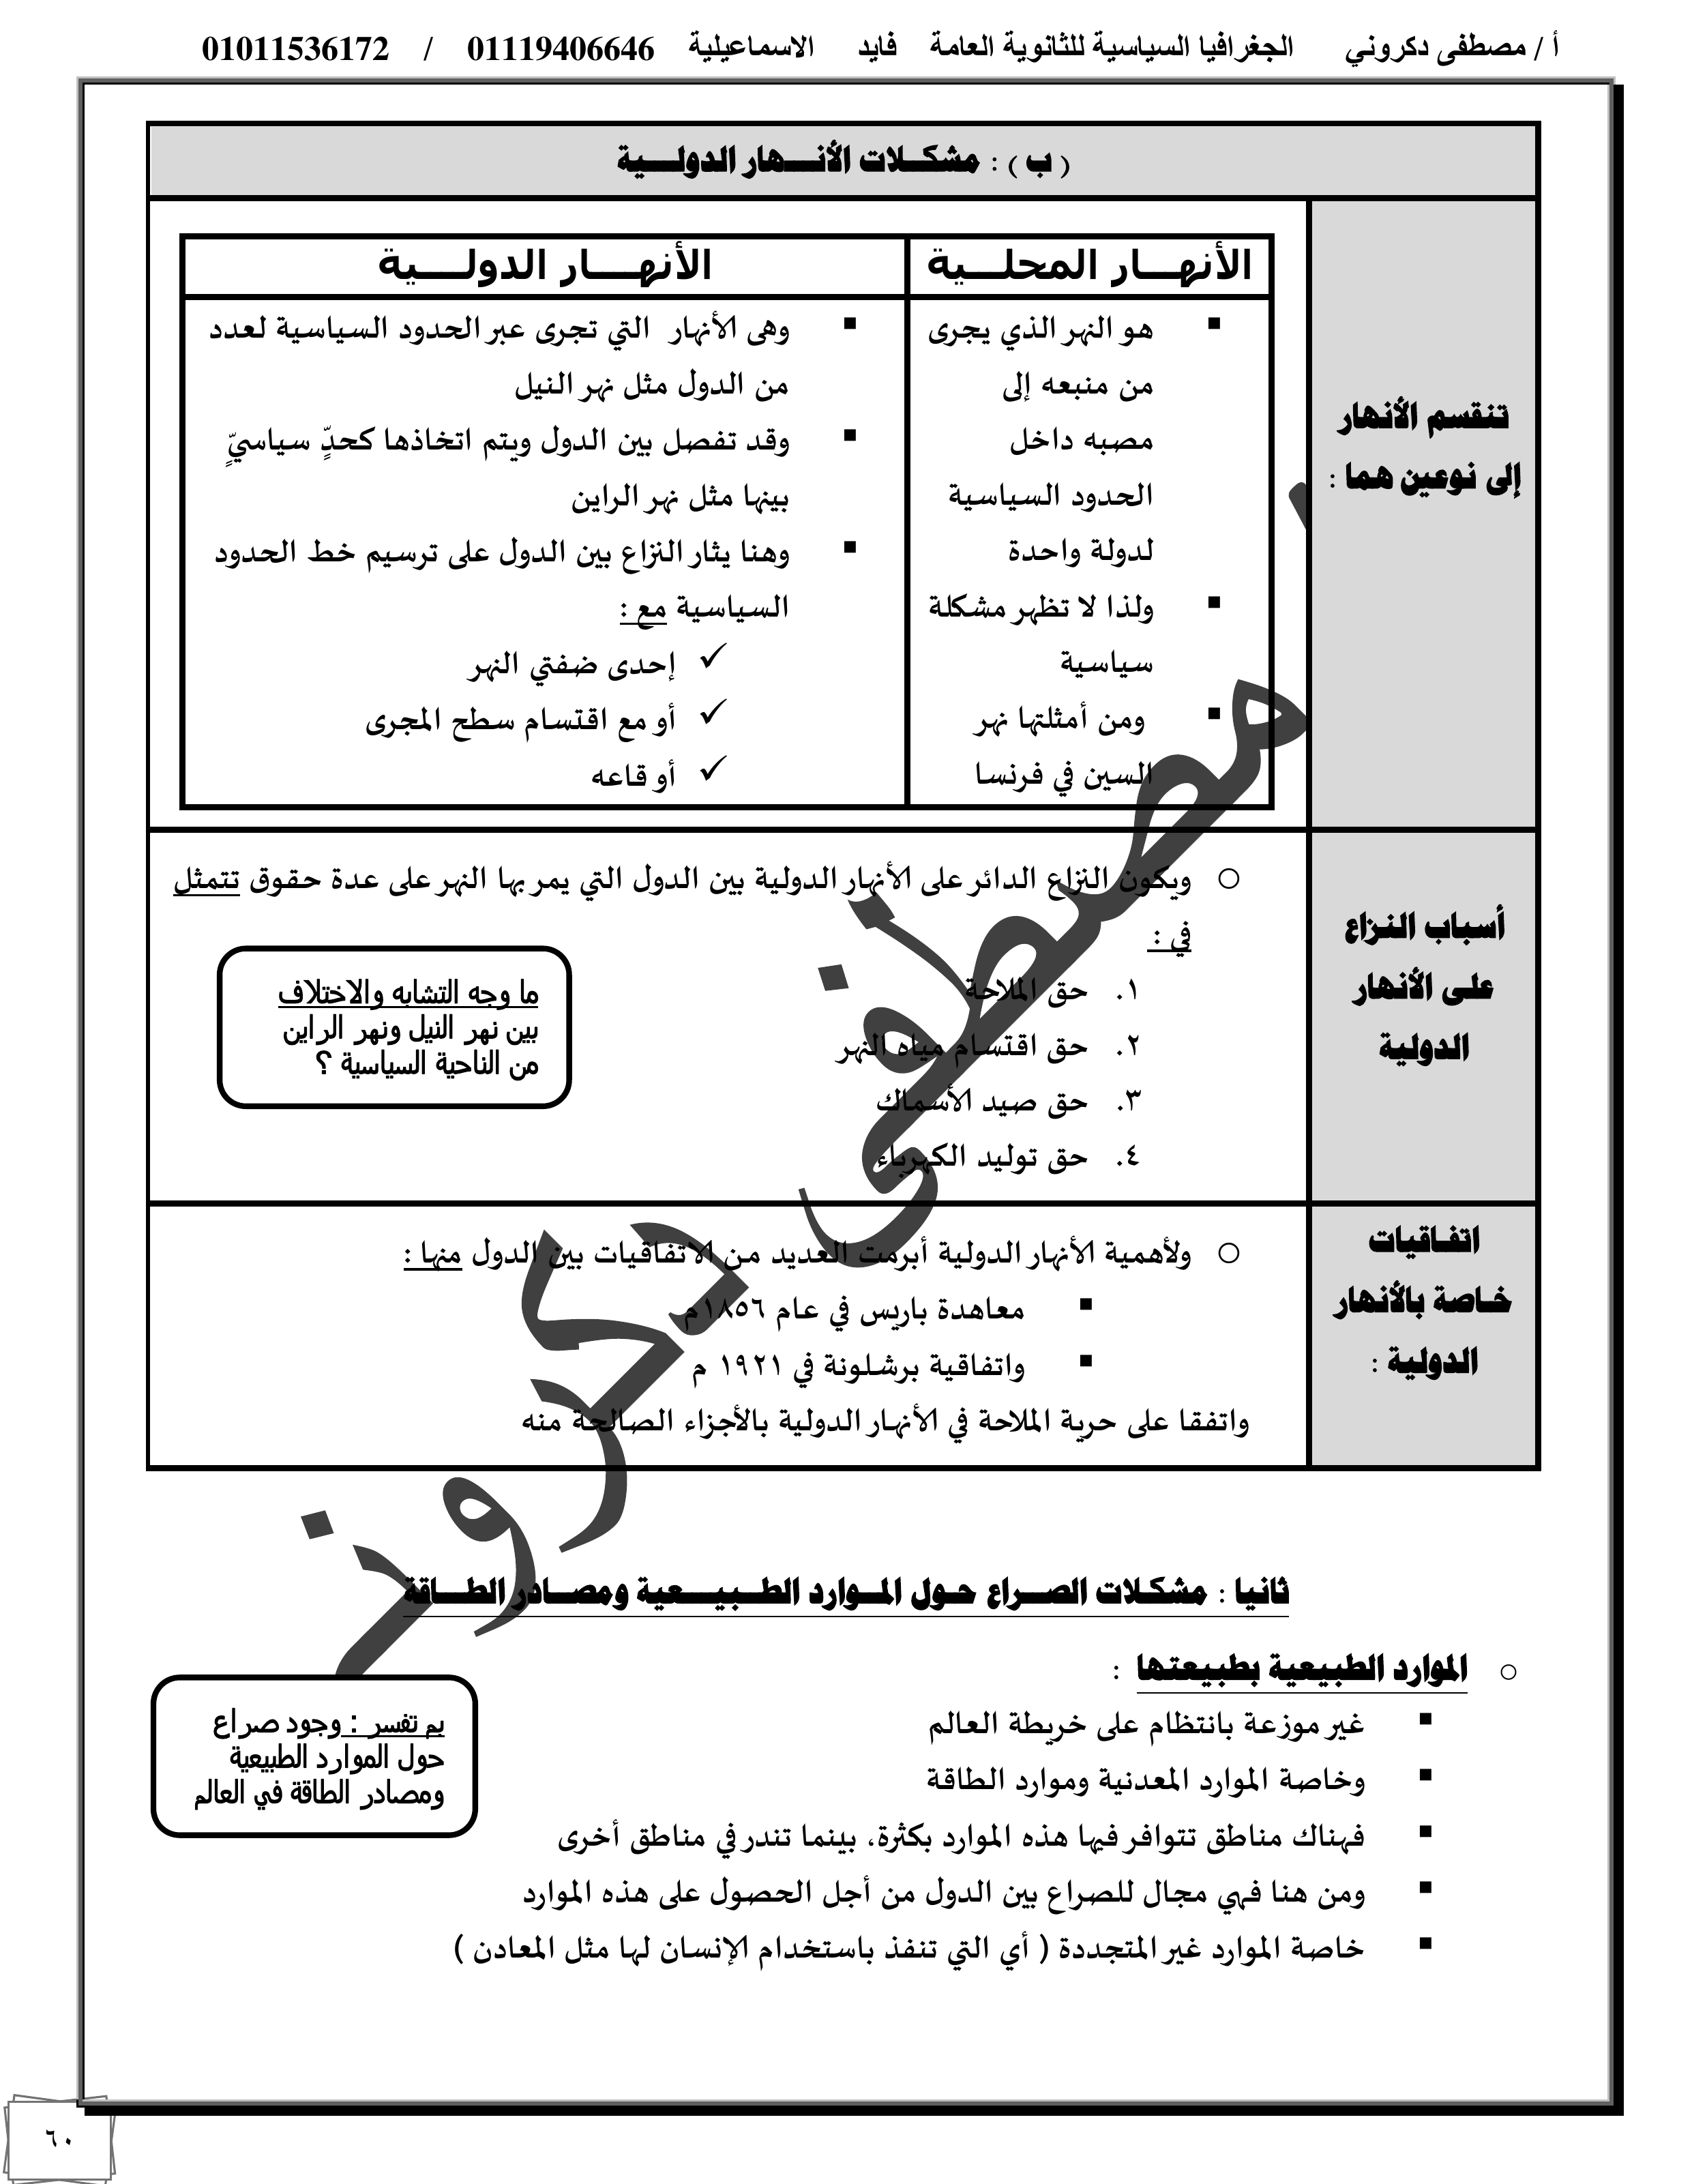 أ / مصطفى دكروني الجغرافيا السياسية للثانوية العامة فايد الاسماعيلية 01119406646 / 01011536172
( ب ) : مشكلات الأنهار الدولية
تنقسم الأنهار
إلى نوعين هما :
الأنهار المحلية
هو النهر الذي يجرى
من منبعه إلى
مصبه داخل
الحدود السياسية
لدولة واحدة
ولذا لا تظهر مشكلة
سياسية
ومن أمثلتها نهر
السين في فرنسا
الأنهار الدولية
وهى الأنهار التي تجرى عبر الحدود السياسية لعدد
من الدول مثل نهر النيل
وقد تفصل بين الدول ويتم اتخاذها كحدٍّ سياسيٍّ
بينها مثل نهر الراين
وهنا يثار النزاع بين الدول على ترسيم خط الحدود
السياسية مع :
✓ إحدى ضفتي النهر
✓ أو مع اقتسام سطح المجرى
✓ أو قاعه
أسباب النزاع
على الأنهار
الدولية
ويكون النزاع الدائر على الأنهار الدولية بين الدول التي يمر بها النهر على عدة حقوق تتمثل
في :
١. حق الملاحة
٢. حق اقتسام مياه النهر
٣. حق صيد الأسماك
٤. حق توليد الكهرباء
ما وجه التشابه والاختلاف
بين نهر النيل ونهر الراين
من الناحية السياسية ؟
اتفاقيات
خاصة بالأنهار
الدولية :
ولأهمية الأنهار الدولية أبرمت العديد من الاتفاقيات بين الدول منها :
معاهدة باريس في عام ١٨٥٦م
واتفاقية برشلونة في ١٩٢١ م
واتفقا على حرية الملاحة في الأنهار الدولية بالأجزاء الصالحة منه
مصطفى دكروني
ثانيا : مشكلات الصراع حول الموارد الطبيعية ومصادر الطاقة
الموارد الطبيعية بطبيعتها :
غير موزعة بانتظام على خريطة العالم
وخاصة الموارد المعدنية وموارد الطاقة
فهناك مناطق تتوافر فيها هذه الموارد بكثرة، بينما تندر في مناطق أخرى
ومن هنا فهي مجال للصراع بين الدول من أجل الحصول على هذه الموارد
خاصة الموارد غير المتجددة ( أي التي تنفذ باستخدام الإنسان لها مثل المعادن )
بم تفسر : وجود صراع
حول الموارد الطبيعية
ومصادر الطاقة في العالم
٦٠